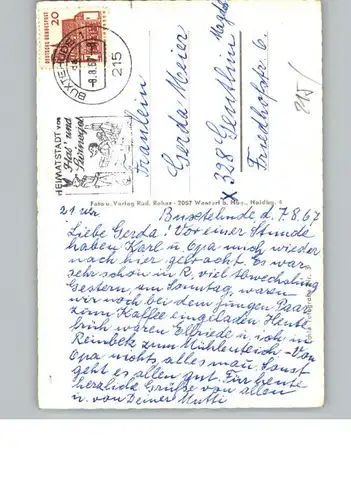 DEUTSCHE BUNDESPOST
20
BUXTEHUDE 1
-8.8.67
215
HEIMATSTADT VON
"Has' und
Swinegel"
Fräulein
Gerda Meier
X 328 Genthin Magdb.
Friedhofstr. 6.
215/
Foto u. Verlag Rud. Reher · 2057 Wentorf b. Hbg., Haidbg. 4
21 Uhr Buxtehude d. 7.8.67
Liebe Gerda! Vor einer Stunde
haben Karl u. Opa mich wieder
nach hier gebracht. Es war
sehr schön in R. viel Abwechslung
Gestern, am Sonntag, waren
wir noch bei dem jungen Paar
zum Kaffee eingeladen Heute
früh waren Elfriede u. ich in
Reinbek zum Mühlenteich – Von
Opa nichts alles mau. Sonst
geht es allen gut. Für heute
herzliche Grüße von allen
u. von Deiner Mutti